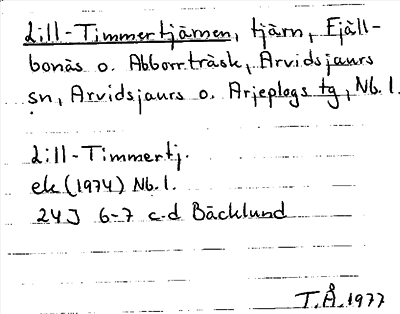 Lill-Timmertjärnen, tjärn, Fjäll-
bonäs o. Abborrträsk, Arvidsjaurs
sn, Arvidsjaurs o. Arjeplogs tg, Nb. l.
Lill-Timmertj.
ek (1974) Nb. l.
24J 6-7 c-d Bäcklund
T.Å. 1977